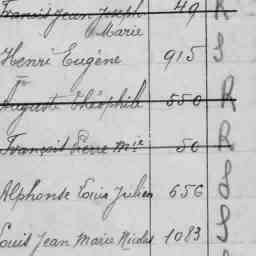 Francis Jean Joseph 49 R
Marie
Henri Eugène 915 S
Auguste Théophile 550 R
François Pierre Mie 50 R
Alphonse Louis Julien 656 S
Louis Jean Marie Nicolas 1083 S